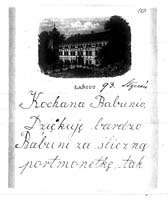 ŁAŃCUT 93. Styczeń
Kochana Babuniu
Dziękuję bardzo
Babuni za śliczną
portmonetkę, tak